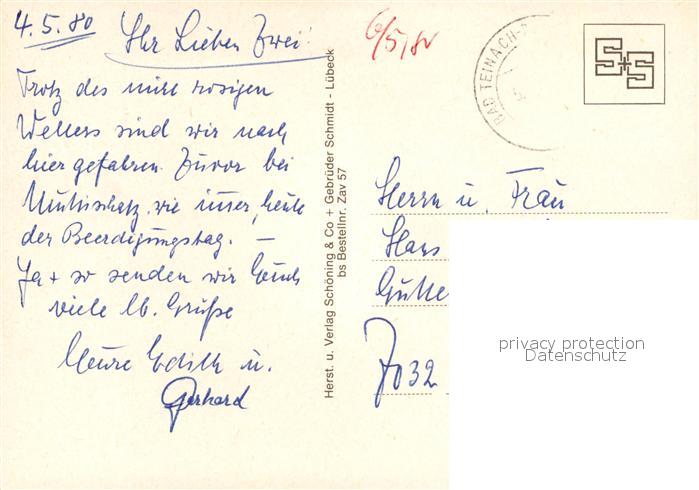 4.5.80
Ihr Lieben Zwei!
Trotz des nicht rosigen
Wetters sind wir nach
hier gefahren. Zuvor bei
Muttischatz, wie immer, heute
der Beerdigungstag. —
Ja + so senden wir Euch
viele lb. Grüße
Eure Edith u.
Gerhard
Herst. u. Verlag Schöning & Co + Gebrüder Schmidt - Lübeck
bs Bestellnr. Zav 57
6/5/80
BAD TEINACH-
S+S
Herrn u. Frau
Hans
7032
privacy protection
Datenschutz